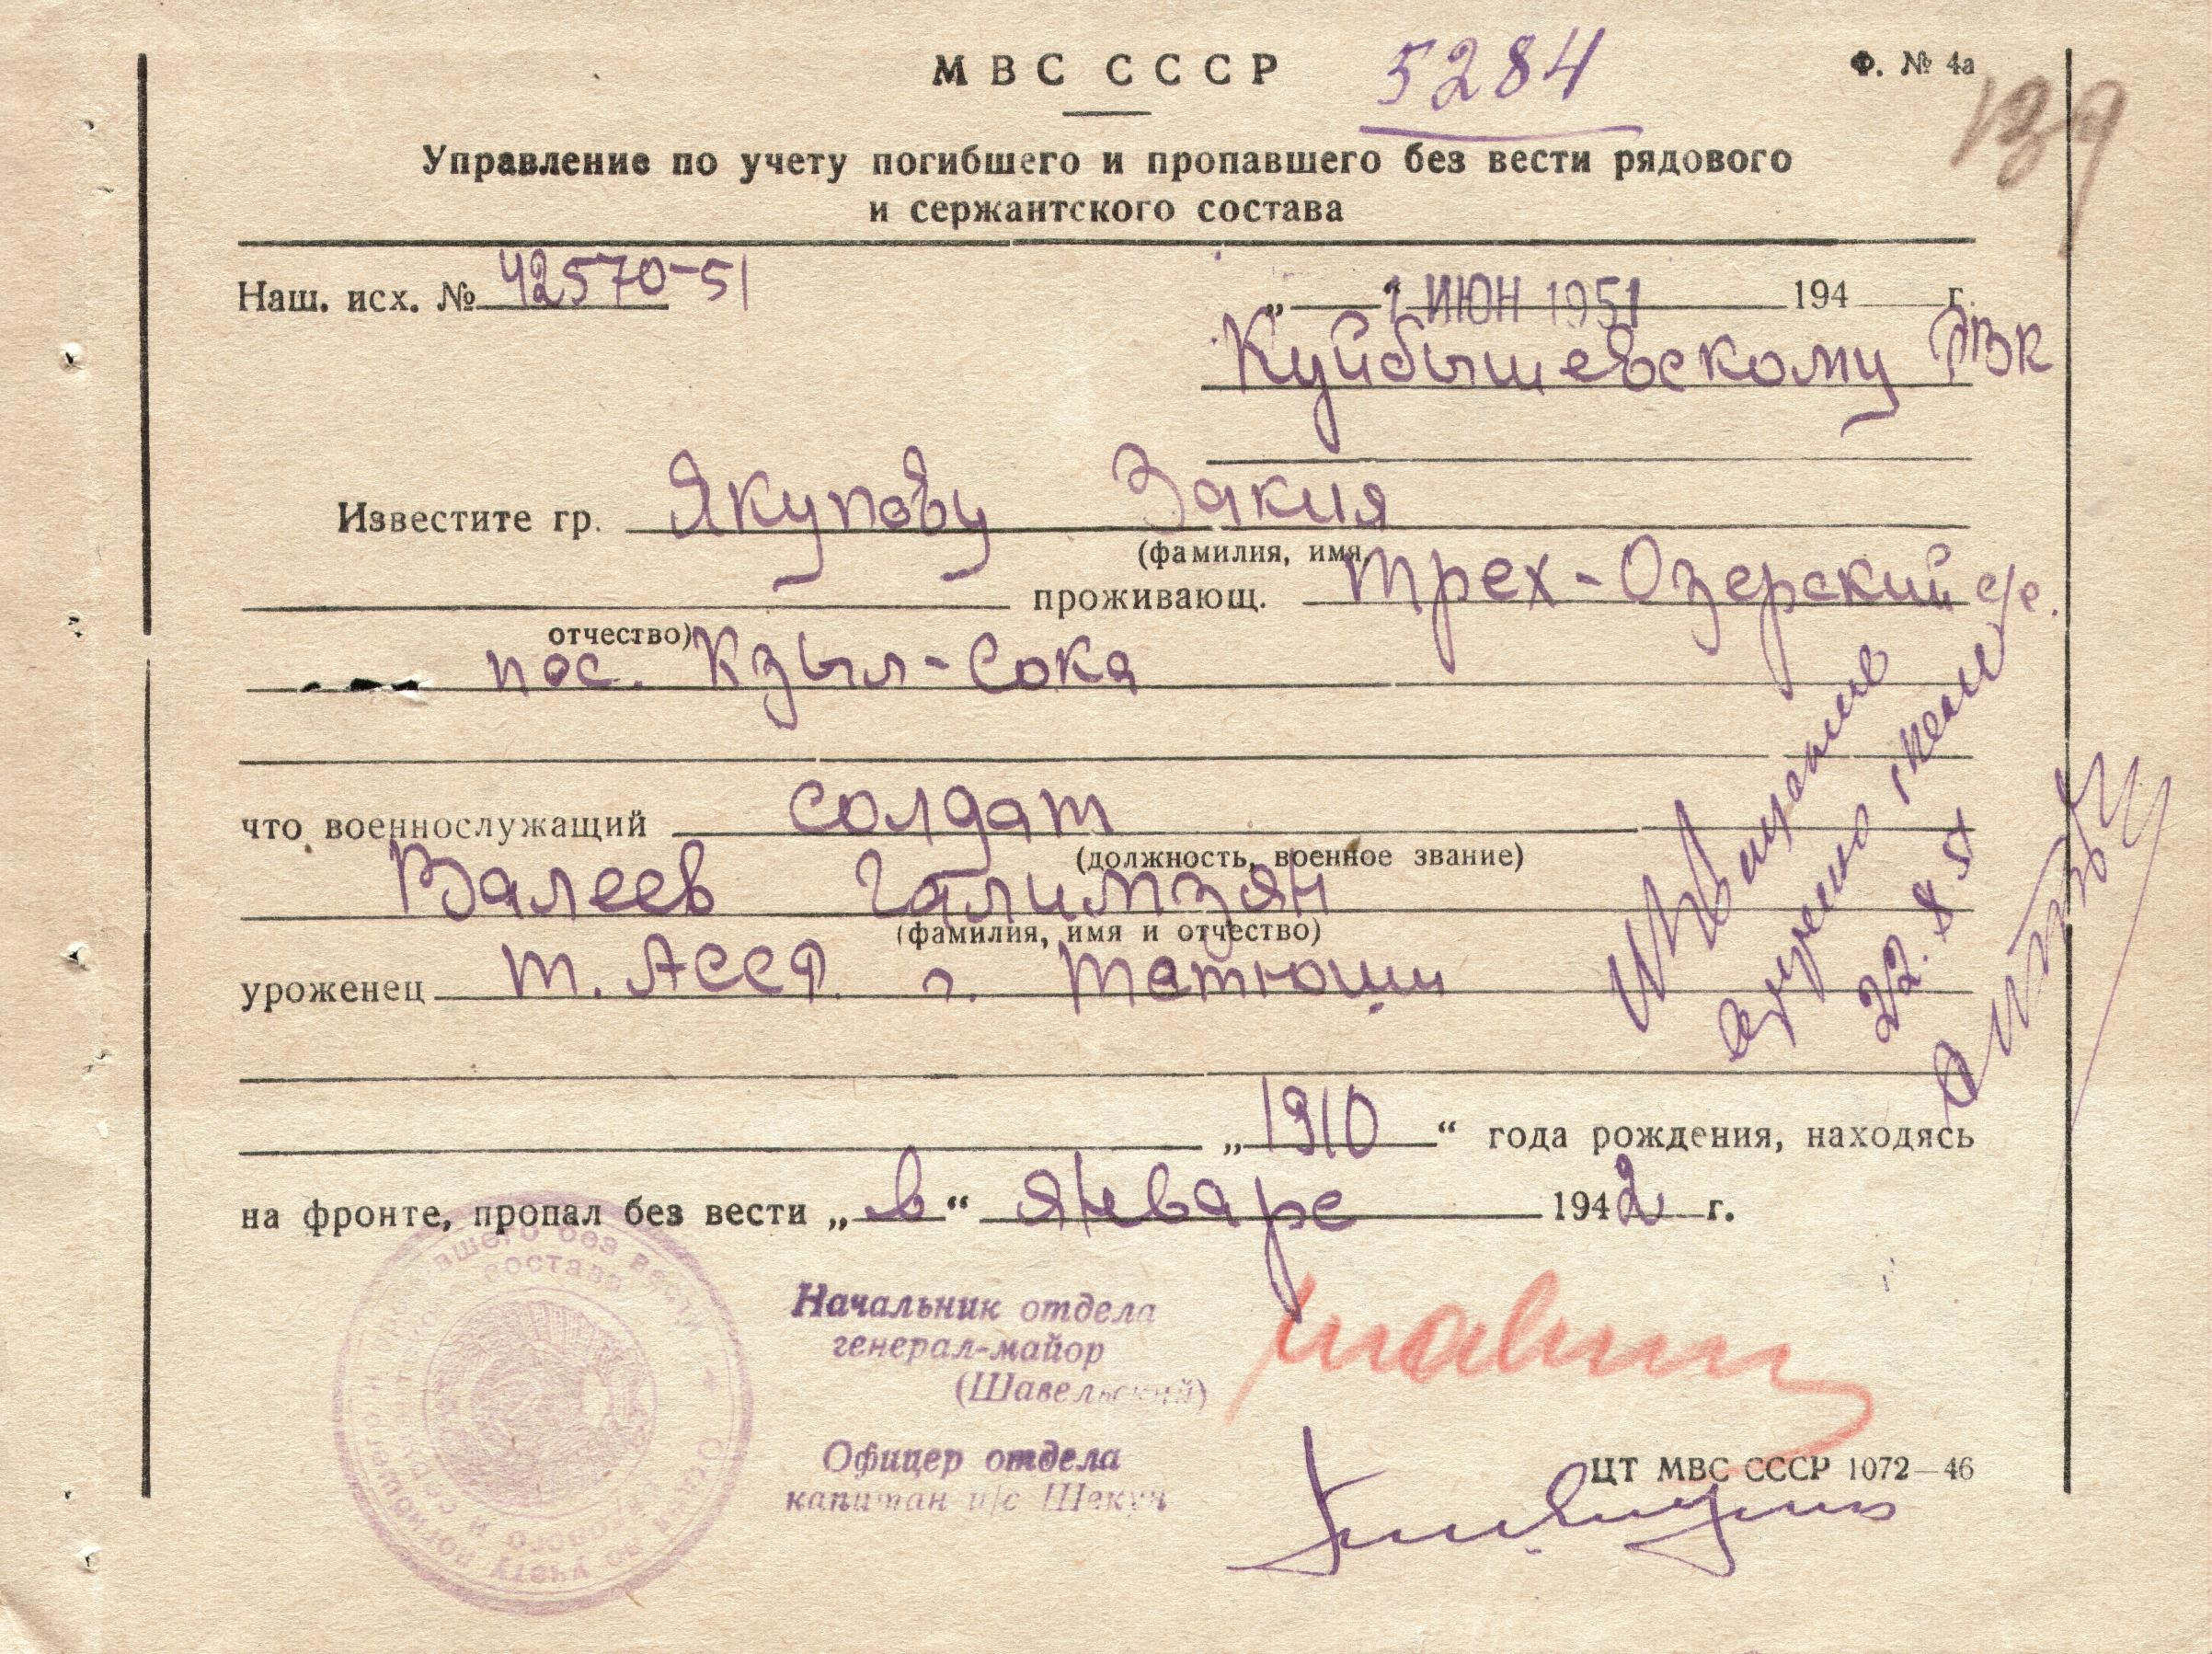 МВС СССР
5284
Ф. № 4а
139
Управление по учету погибшего и пропавшего без вести рядового
и сержантского состава
Наш. исх. № 42570-51
„ 1 ИЮН 1951 194 г.
Куйбышевскому РВК
Известите гр. Якупову Закия
(фамилия, имя,
проживающ. Трех-Озерский с/с.
отчество)
пос. Кзыл-Сока
что военнослужащий солдат
(должность, военное звание)
Валеев Галимзян
(фамилия, имя и отчество)
уроженец Т. АССР. г. Тетюши
„1910“ года рождения, находясь
на фронте, пропал без вести „в“ январе 1942 г.
Извещение
вручено
22. 8 51
Начальник отдела
генерал-майор
(Шавельский)
Офицер отдела
капитан и/с
ЦТ МВС СССР 1072—46